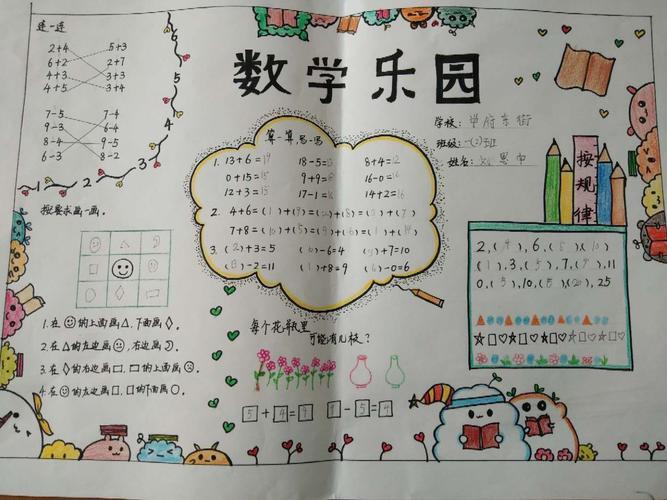 连一连
2+4 5+3
6+2 2+7
4+3 3+3
4+5 3+4
7-5 7-4
9-3 6-4
8-4 9-5
6-3 8-2
1 2 3 4 5 6
数学乐园
学校:
班级:一(2)班
姓名:
算一算,思一思
1. 13+6=19 18-5=13 8+4=12
0+15=15 9+9=18 16-0=16
12+3=15 17-1=16 14+2=16
2. 4+6=(1)+(9)=(2)+(8)=(3)+(7)
3. (2)+3=5 -6=4 +7=10
-2=11 (1)+8=9 -0=6
按规律
2,(4),6,(8),(10)
(1),3,(5),7,(9),11
0,(5),10,(15),(20),25
按要求画一画。
1.在☺的上面画△,下面画◇。
2.在△的左边画☹,右边画
3.在◇的右边画□,□的上面画○。
4.在☺的左边画□,□的下面画○。
每个花瓶里
可能有几枝?
5+4=9 9-5=4